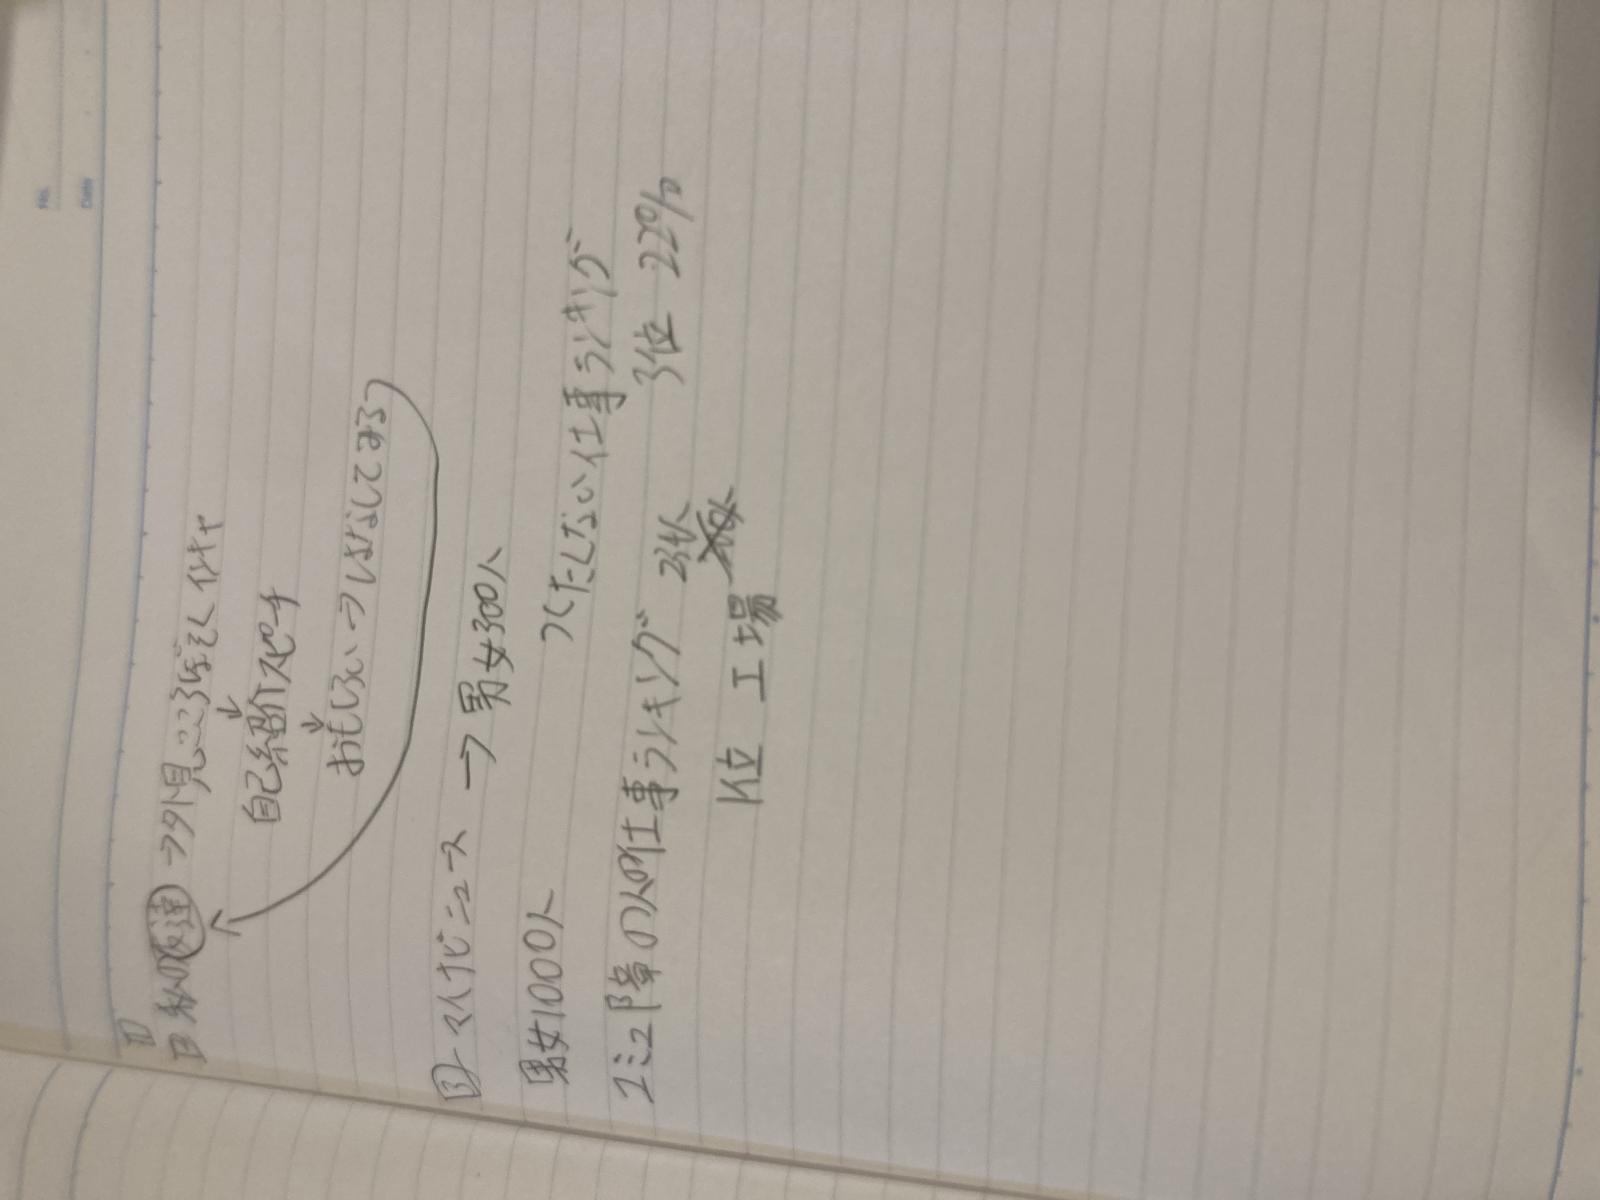 No.
Date
私の友達→外見ここ3ぼそくイケイケ
↓
自己紹介スピーチ
↓
おもしろい→はなしてみる
③マイナビニュース → 男女300人
男女1000人 つくたしない仕事ランキング
コミュ障の人の仕事ランキング 3位 22%
1位 工場